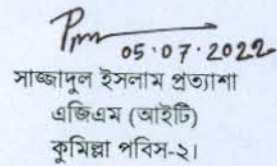 05.07.2022
সাজ্জাদুল ইসলাম প্রত্যাশা
এজিএম (আইটি)
কুমিল্লা পবিস-২।